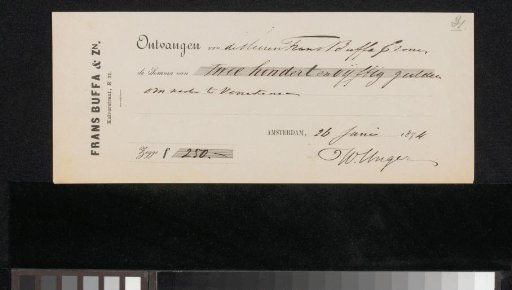 FRANS BUFFA & ZN.
Kalverstraat,
Ontvangen van de Heeren Frans Buffa & Zonen
de Somma van twee honderd en vijftig gulden
om reden te
AMSTERDAM, 26 Juni 1894
Zegge f 250.—
W. Unger